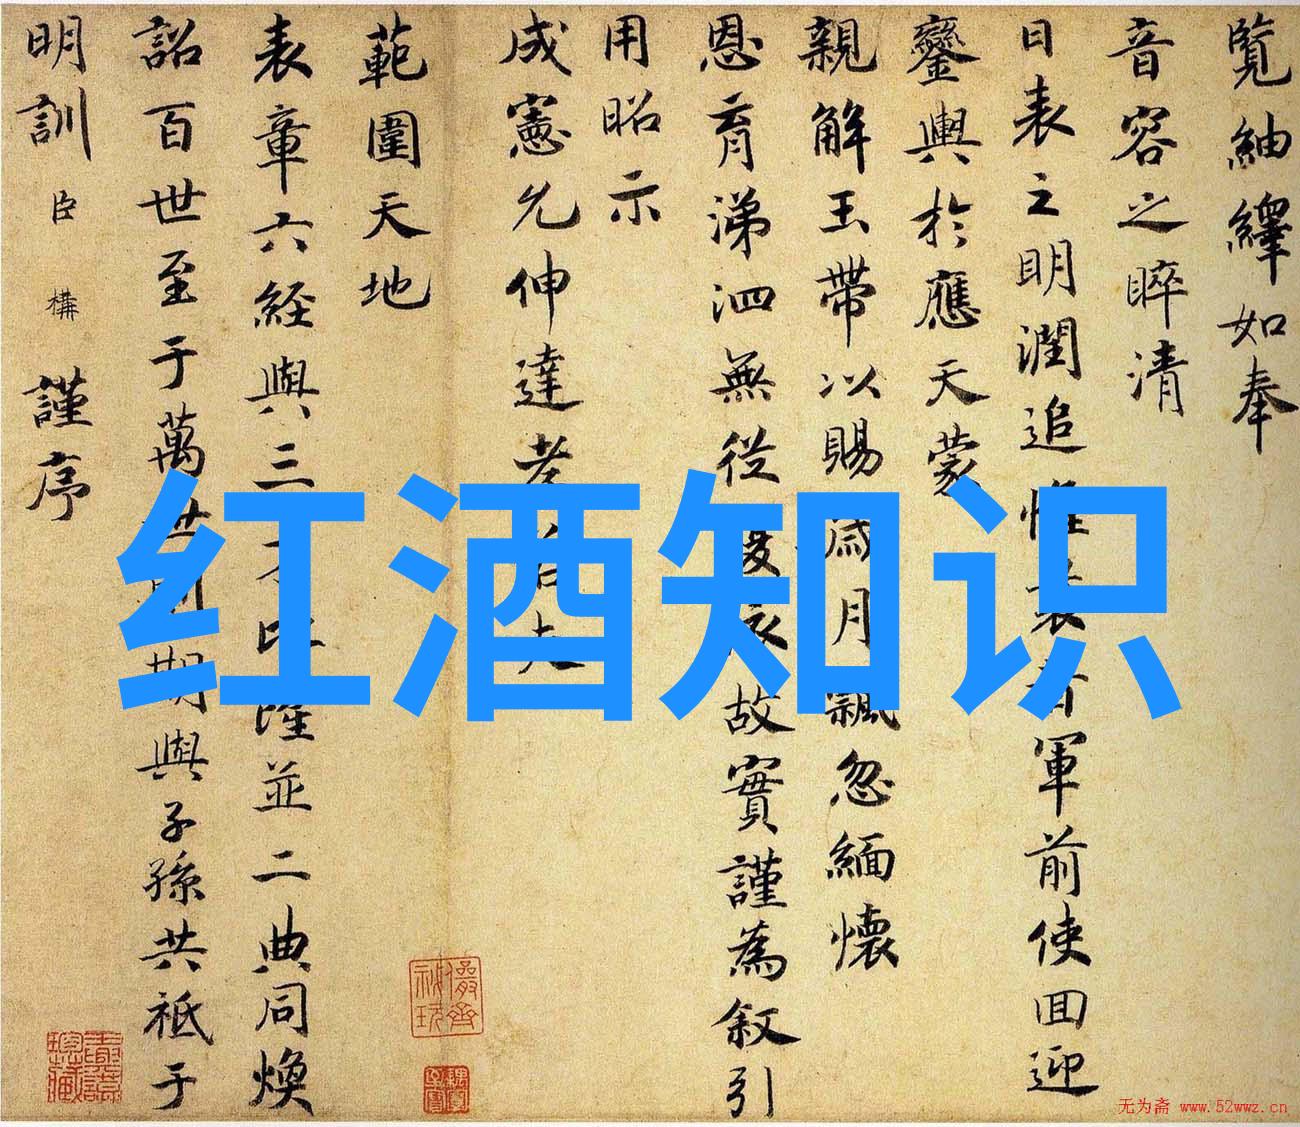 覽紬繹如奉
音容之睟清
日表之明潤追惟
軍前使回迎
鑾輿於應天蒙
親解玉帶以賜歲月飄忽緬懷
恩育涕泗無從
故實謹為叙引
用昭示
成憲允伸達孝
範圍天地
表章六經與三
並二典同煥
詔百世至于萬世
期與子孫共祗于
明訓臣構謹序
红酒知识
无为斋 www.52wwz.cn